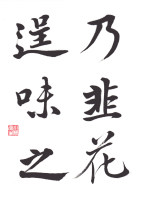 乃韭花
逞味之